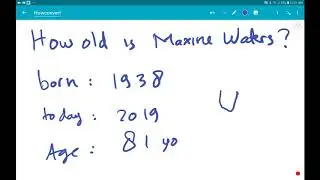 Howconvert
How old is Maxine Waters?
born : 1938
today : 2019
Age : 81 yo
U